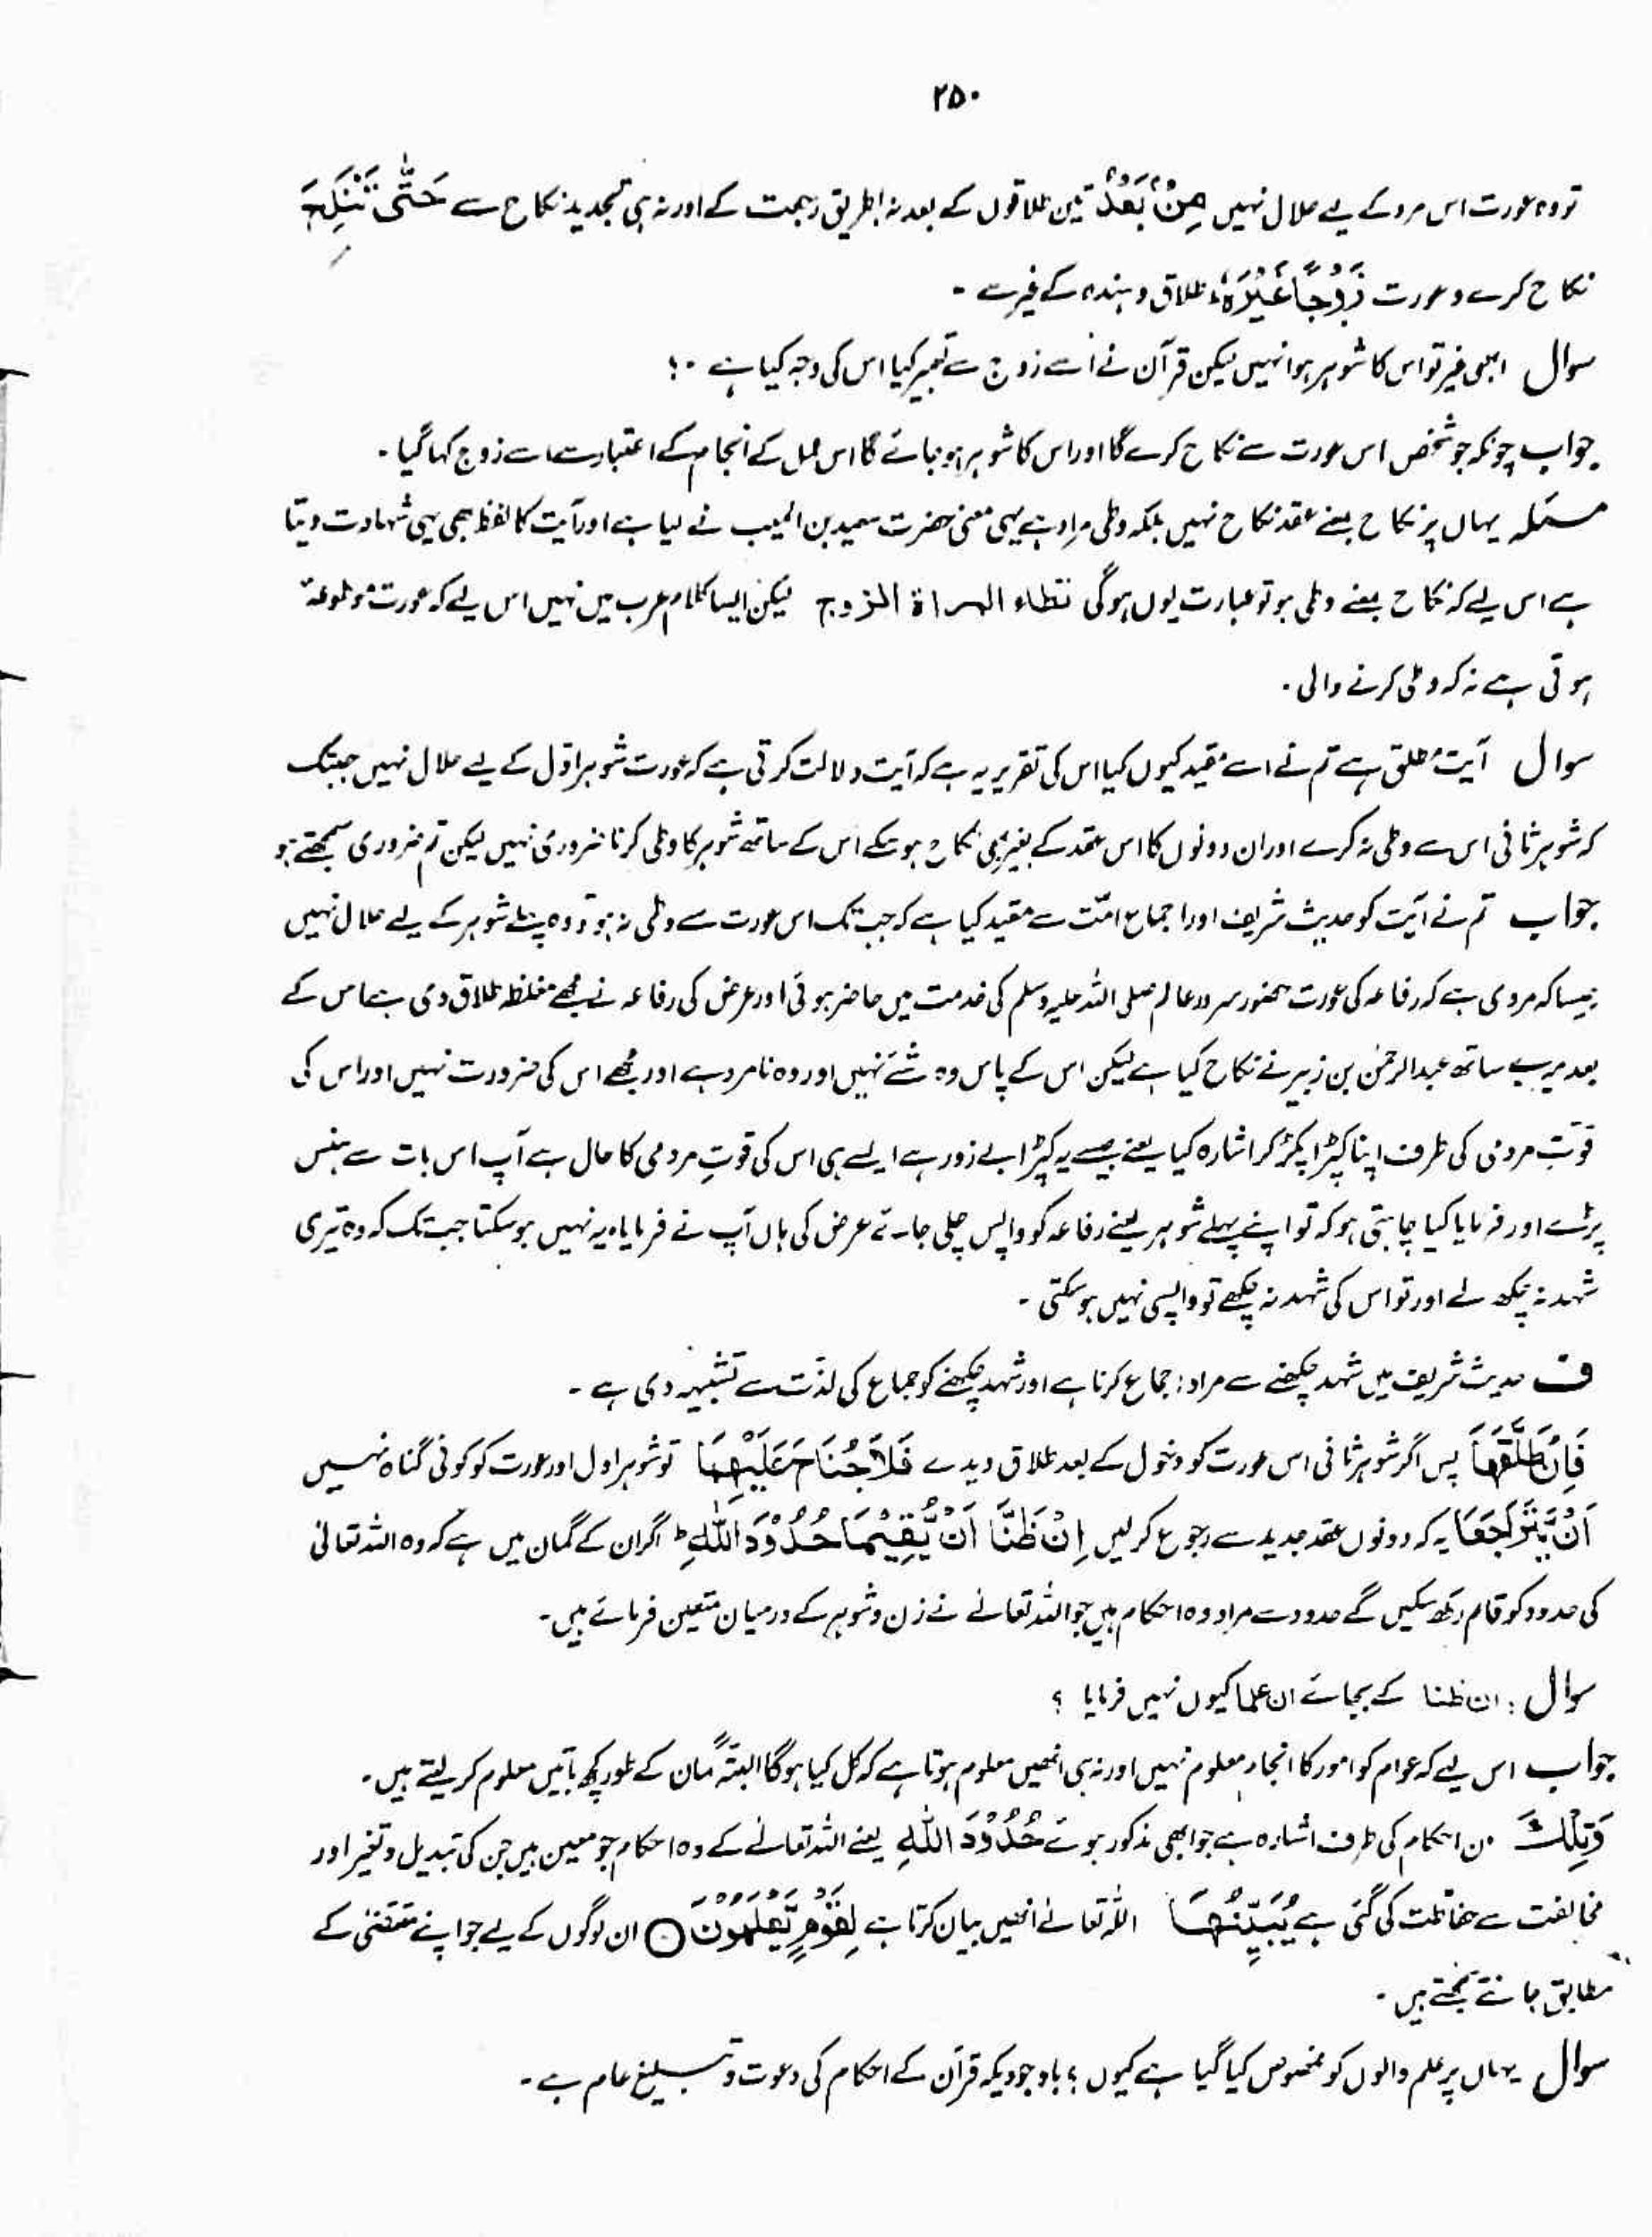 ۲۵۰
تو وہ عورت اس مرد کے لیے حلال نہیں مِنْۢ بَعْدُ تین طلاقوں کے بعد نہ بطریق رجعت کے اور نہ ہی تجدید نکاح سے حَتّٰی تَنْکِحَ
نکاح کرے وہ عورت زَوْجًا غَیْرَہٗ ؕ طلاق دہندہ کے غیر سے ۔
سوال ابھی غیر تو اس کا شوہر ہوا نہیں لیکن قرآن نے اُسے زوج سے تعبیر کیا اس کی وجہ کیا ہے ۔؟
جواب چونکہ جو شخص اس عورت سے نکاح کرے گا اور اس کا شوہر ہو جائے گا اس عمل کے انجام کے اعتبار سے اسے زوج کہا گیا ۔
مسئلہ یہاں پر نکاح بمعنے عقد نکاح نہیں بلکہ وطی مراد ہے یہی معنیٰ حضرت سعید بن المسیب نے لیا ہے اور آیت کا لفظ بھی یہی شہادت دیتا
ہے اس لیے کہ نکاح بمعنے وطی ہو تو عبارت یوں ہوگی تنطاء المراۃ الزوج لیکن ایسا کلام عرب میں نہیں اس لیے کہ عورت موطوءۃ
ہوتی ہے نہ کہ وطی کرنے والی ۔
سوال آیت مُطلق ہے تم نے اسے مُقید کیوں کیا اس کی تقریر یہ ہے کہ آیت دلالت کرتی ہے کہ عورت شوہر اوّل کے لیے حلال نہیں جبتک
کہ شوہر ثانی اس سے وطی نہ کرے اور ان دونوں کا اس عقد کے بغیر ہی نکاح ہو سکے اس کے ساتھ شوہر کا وطی کرنا ضروری نہیں لیکن تم ضروری سمجھتے ہو
جواب تم نے آیت کو حدیث شریف اور اجماع امّت سے مقید کیا ہے کہ جب تک اس عورت سے وطی نہ ہو تو وہ پہلے شوہر کے لیے حلال نہیں
جیسا کہ مروی ہے کہ رفاعہ کی عورت حضور سرور عالم صلی اللہ علیہ وسلم کی خدمت میں حاضر ہوئی اور عرض کی رفاعہ نے مجھے مغلظہ طلاق دی ہے اس کے
بعد میرے ساتھ عبدالرحمٰن بن زبیر نے نکاح کیا ہے لیکن اس کے پاس وہ شے نہیں اور وہ نامرد ہے اور مجھے اس کی ضرورت نہیں اور اس کی
قوّتِ مردمی کی طرف اپنا کپڑا پکڑ کر اشارہ کیا یعنے جیسے یہ کپڑا بے زور ہے ایسے ہی اس کی قوتِ مردمی کا حال ہے آپ اس بات سے ہنس
پڑے اور فرمایا کیا چاہتی ہو کہ تو اپنے پہلے شوہر یعنے رفاعہ کو واپس چلی جائے عرض کی ہاں آپ نے فرمایا ہ یہ نہیں ہو سکتا جب تک کہ وہ تیری
شہد نہ چکھ لے اور تو اس کی شہد نہ چکھے تو واپسی نہیں ہو سکتی ۔
ف حدیث شریف میں شہد چکھنے سے مراد : جماع کرنا ہے اور شہد چکھنے کو جماع کی لذّت سے تشبیہہ دی ہے ۔
فَاِنْ طَلَّقَهَا پس اگر شوہر ثانی اس عورت کو دخول کے بعد طلاق دیدے فَلَا جُنَاحَ عَلَیْهِمَا تو شوہر اول اور عورت کو کوئی گناہ نہیں
اَنْ یَّتَرَاجَعَا یہ کہ دونوں عقد جدید سے رجوع کر لیں اِنْ ظَنَّا اَنْ یُّقِیْمَا حُدُوْدَ اللّٰهِ ؕ اگر ان کے گمان میں ہے کہ وہ اللہ تعالیٰ
کی حدود کو قائم رکھ سکیں گے حدود سے مراد وہ احکام ہیں جو اللہ تعالےٰ نے زن و شوہر کے درمیان متعین فرمائے ہیں ۔
سوال : ان ظنا کے بجائے ان علما کیوں نہیں فرمایا ؟
جواب اس لیے کہ عوام کو امور کا انجام معلوم نہیں اور نہ ہی انھیں معلوم ہوتا ہے کہ کل کیا ہوگا البتّہ گمان کے طور کچھ باتیں معلوم کر لیتے ہیں ۔
وَتِلْكَ ان احکام کی طرف اشارہ ہے جو ابھی مذکور ہوئے حُدُوْدَ اللّٰهِ یعنے اللہ تعالےٰ کے وہ احکام جو معین ہیں جن کی تبدیل و تغیر اور
مخالفت سے حفاظت کی گئی ہے یُبَیِّنُهَا اللہ تعالےٰ انھیں بیان کرتا ہے لِقَوْمٍ یَّعْلَمُوْنَ ○ ان لوگوں کے لیے جو اپنے مقتضیٰ کے
مطابق جانتے سمجھتے ہیں ۔
سوال یہاں پر علم والوں کو مخصوص کیا گیا ہے کیوں ؟ باوجودیکہ قرآن کے احکام کی دعوت و تبلیغ عام ہے ۔